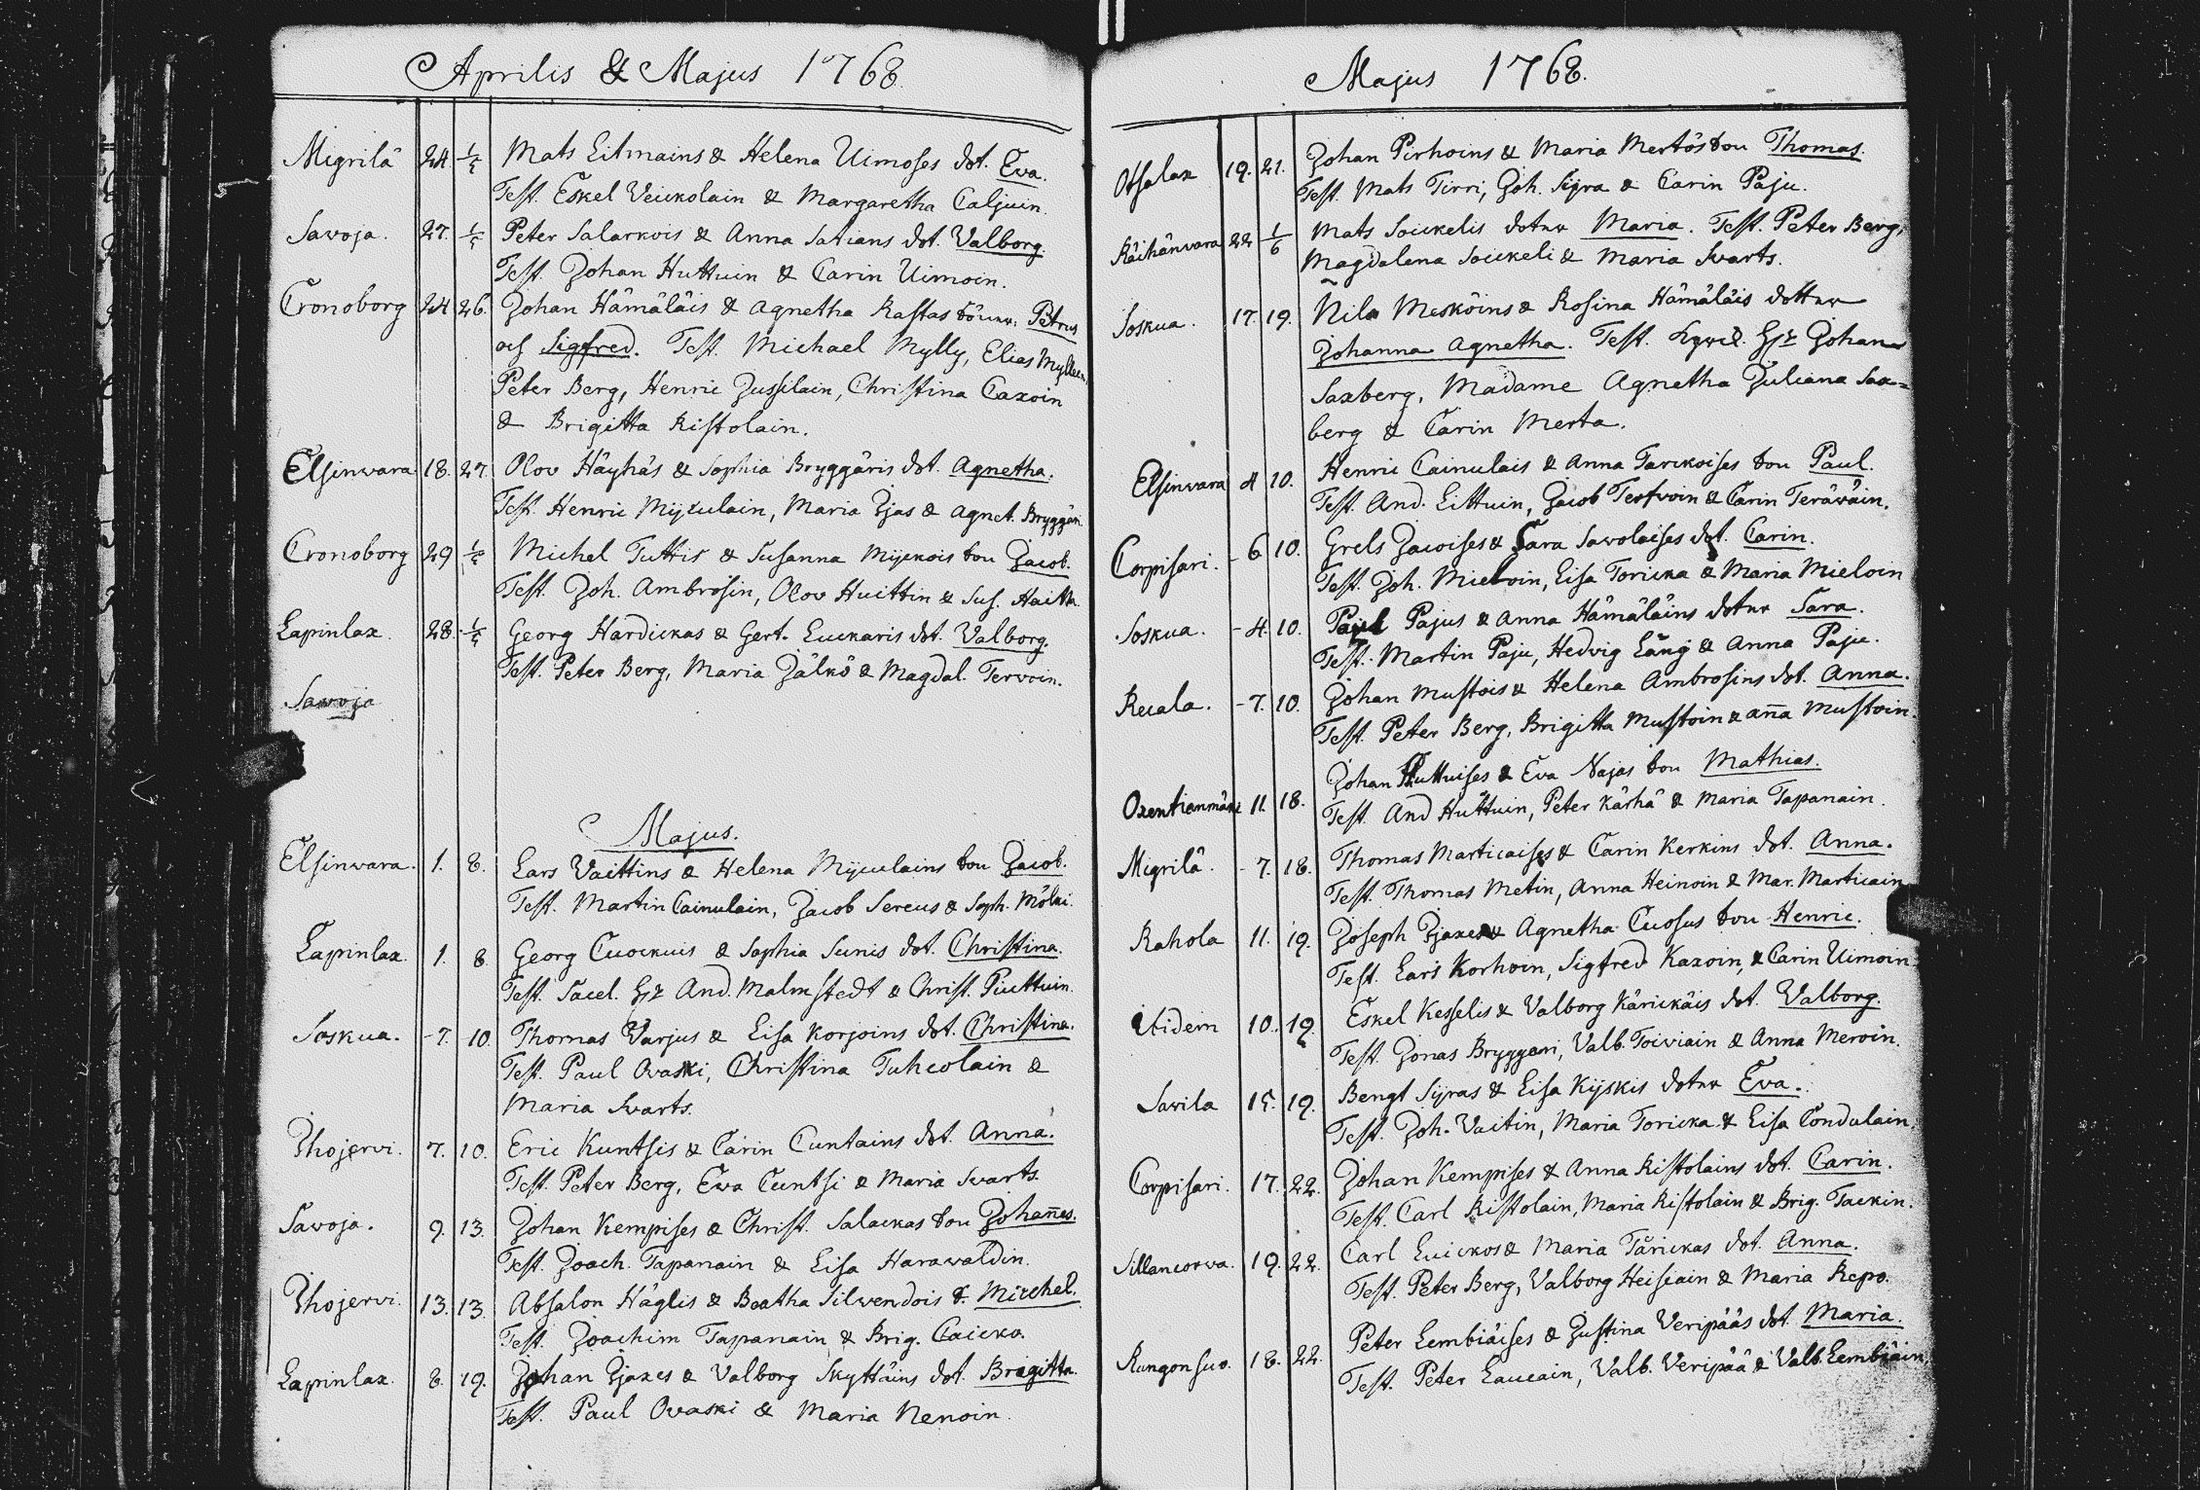 Aprilis & Majus 1768.
Migrilä 24 1/5 Mats Eitmains & Helena Uimoses dot. Eva.
Test. Eskel Veickolain & Margaretha Caljuin.
Savoja. 27. 1/5 Peter Salarkois & Anna Satians dot. Valborg.
Test. Johan Huttuin & Carin Uimoin.
Cronoborg 24 26. Johan Hämäläis & Agnetha Rastas söner: Petrus
och Sigfred. Test. Michael Mylly, Elias Mylleen,
Peter Berg, Henric Jussilain, Christina Caxoin
& Brigitta Ristolain.
Elsinvara 18. 27. Olov Häyhäs & Sophia Bryggäris dot. Agnetha.
Test. Henric Mijculain, Maria Ijas & Agnet. Bryggäri.
Cronoborg 29 1/5 Michel Tuttis & Susanna Mijckois son Jacob.
Test. Joh. Ambrosin, Olov Huittin & Sus.
Lapinlax. 28. 1/5 Georg Hardickas & Gert. Luckaris dot. Valborg.
Test. Peter Berg, Maria Jälkö & Magdal. Tervoin.
Savoja
Majus.
Elsinvara. 1. 8. Lars Vaittins & Helena Mijculains son Jacob.
Test. Martin Cainulain, Jacob Sereus & Soph. Mölki.
Lapinlax. 1. 8. Georg Cuockuis & Sophia Sunis dot. Christina.
Test. Sacel. Hr And. Malmstedt & Christ. Piuttuin.
Soskua. - 7. 10. Thomas Varjus & Lisa Korpoins dot. Christina.
Test. Paul Ovaski, Christina Tuhcolain &
Maria Svarts.
Ihojervi. 7. 10. Eric Kuntsis & Carin Cuntains dot. Anna.
Test. Peter Berg, Ewa Cuntsi & Maria Svarts.
Savoja. 9. 13. Johan Kempises & Christ. Salackas son Johañes.
Test. Joach. Tapanain & Lisa Harawaldin.
Ihojervi. 13. 13. Absalon Häglis & Beatha Silwendois s. Michel.
Test. Joachim Tapanain & Brig. Caicko.
Lapinlax. 8. 19. Johan Ijaxes & Valborg Skyttäins dot. Brigitta.
Test. Paul Ovaski & Maria Nenoin.
Majus 1768.
Otsalax 19. 21. Johan Pirhoins & Maria Mertös son Thomas.
Test. Mats Tirri, Joh. Sijra & Carin Paju.
Räihänvara 22 1/6 Mats Soickelis dotter Maria. Test. Peter Berg,
Magdalena Soickeli & Maria Svarts.
Soskua. 17. 19. Nils Meskoins & Rosina Hämäläis dotter
Johanna Agnetha. Test. Hr Johan
Saxberg, Madame Agnetha Juliana Sax=
berg & Carin Merta.
Elsinvara 4 10. Henric Cainulais & Anna Tarckoises son Paul.
Test. And. Littuin, Jacob Terfvoin & Carin Teräväin.
Corpisari. - 6 10. Grels Jacoises & Sara Savolaises dot. Carin.
Test. Joh. Mieloin, Lisa Toricka & Maria Mieloin
Soskua. - 4. 10. Paul Pajus & Anna Hämäläins dotter Sara.
Test. Martin Paju, Hedvig Läng & Anna Paju.
Recala. - 7. 10. Johan Mustois & Helena Ambrosins dot. Anna.
Test. Peter Berg, Brigitta Mustoin & Aña Mustoin.
Oxentienmäki 11. 18. Johan Huttuises & Eva Najas son Mathias.
Test. And Huttuin, Peter Kärhä & Maria Tapanain.
Migrilä. - 7. 18. Thomas Marticaises & Carin Kerkins dot. Anna.
Test. Thomas Metin, Anna Heinoin & Mar. Marticain
Rahola 11. 19. Joseph Ijaxes & Agnetha Cuosus son Henric.
Test. Lars Korhoin, Sigfred Kaxoin, & Carin Uimoin.
Utidem 10. 19. Eskel Kesselis & Valborg Kärickäis dot. Valborg.
Test. Jonas Bryggari, Valb. Toiviain & Anna Meroin.
Savila 15. 19. Bengt Sijras & Lisa Kijskis dotter Eva.
Test. Joh. Vaitin, Maria Toricka & Lisa Condulain.
Corpisari. 17. 22. Johan Kempises & Anna Ristolains dot. Carin.
Test. Carl Ristolain, Maria Ristolain & Brig. Tackin.
Sillancorva. 19. 22. Carl Luickos & Maria Tärickas dot. Anna.
Test. Peter Berg, Valborg Heiscain & Maria Repo.
Kungonsuo. 18. 22. Peter Lembiäises & Justina Veripääs dot. Maria.
Test. Peter Laucain, Valb. Veripää & Valb. Lembiäin.